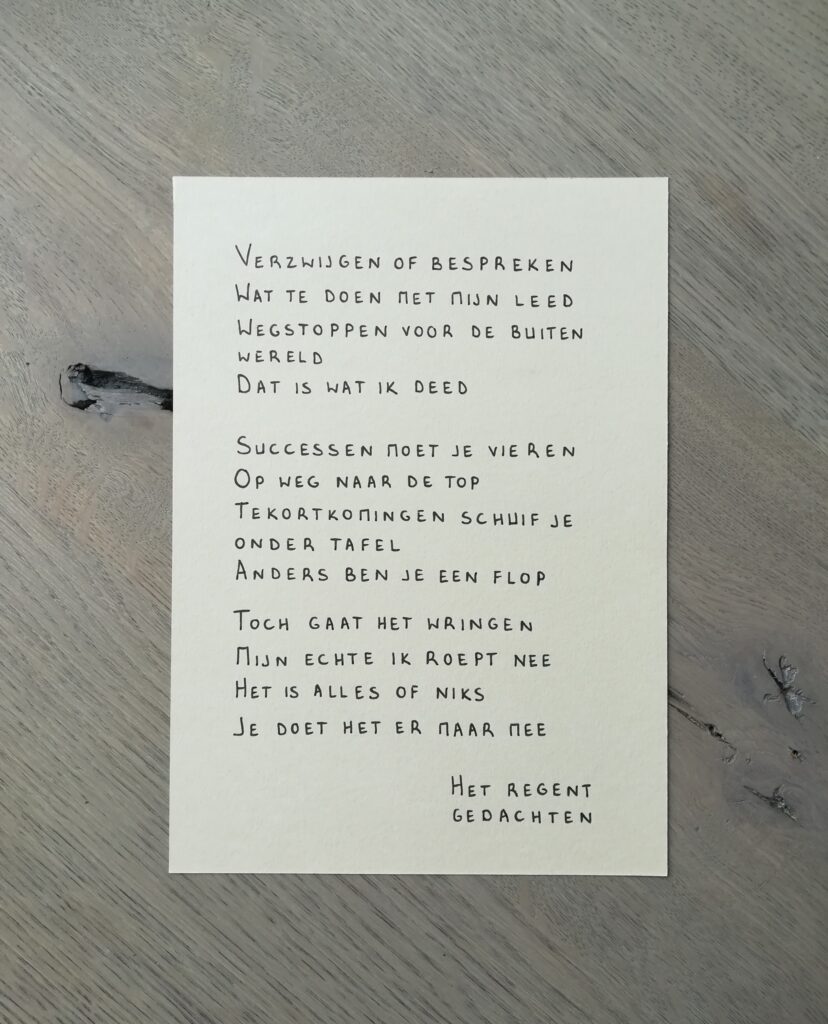 Verzwijgen of bespreken
Wat te doen met mijn leed
Wegstoppen voor de buiten
wereld
Dat is wat ik deed
Successen moet je vieren
Op weg naar de top
Tekortkomingen schuif je
onder tafel
Anders ben je een flop
Toch gaat het wringen
Mijn echte ik roept nee
Het is alles of niks
Je doet het er maar mee
Het regent
gedachten